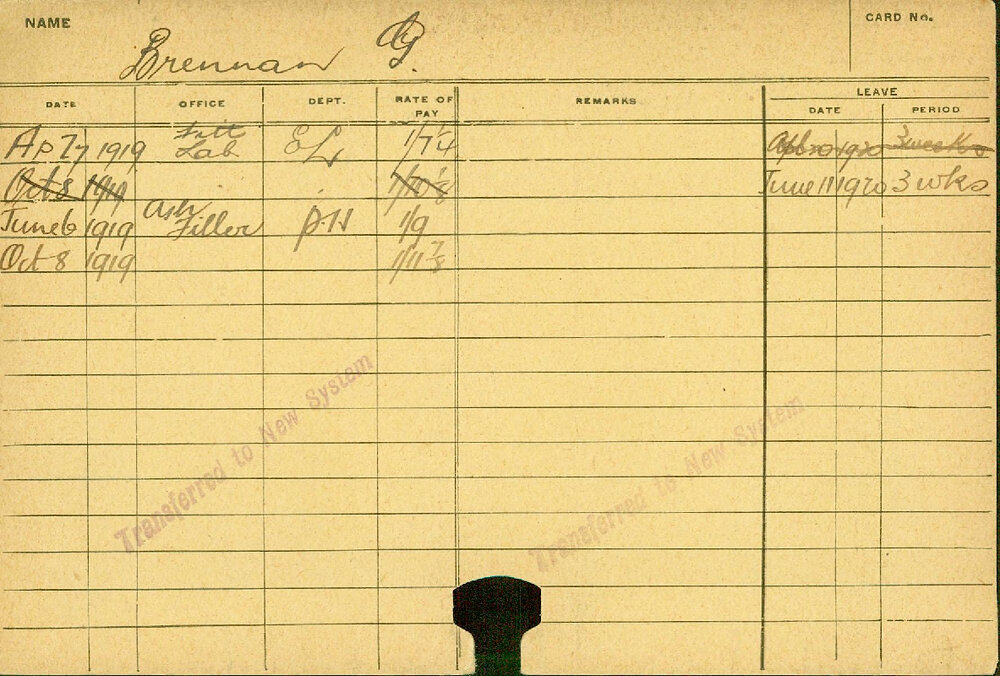 NAME
CARD No.
Brennan G.
DATE OFFICE DEPT. RATE OF PAY REMARKS LEAVE
DATE PERIOD
Ap 7 1919 Fitt Lab EL 1/7¼ 3 weeks
Oct 8 1919
June 11 1920 3 wks
June 6 1919 Ash Filler P.H 1/9
Oct 8 1919 1/11⅞
Transferred to New System
Transferred to New System